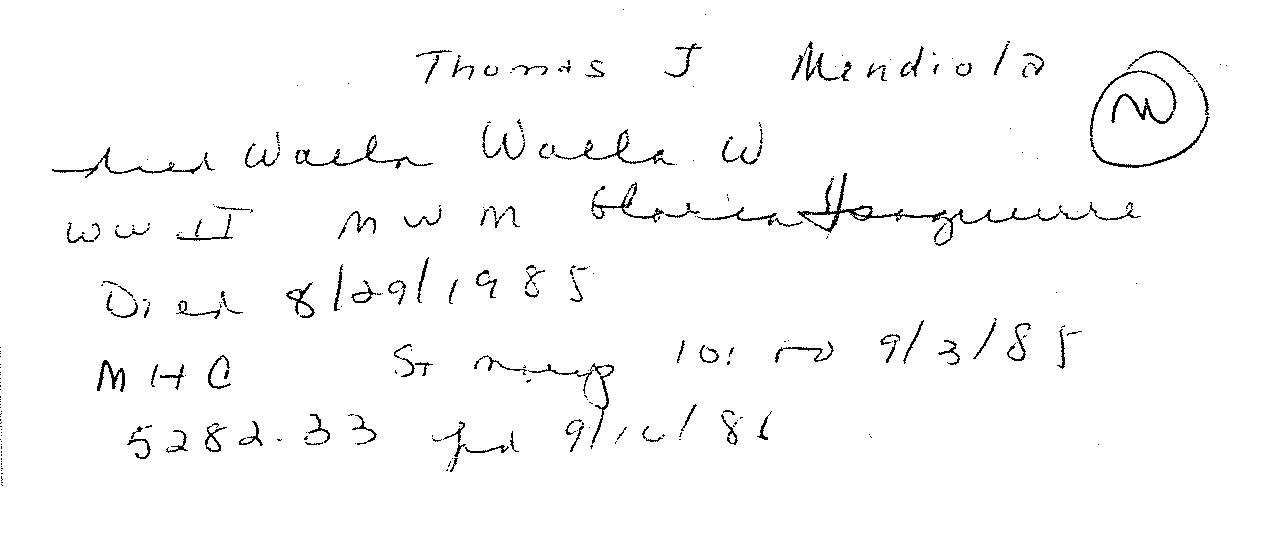 Thomas J Mendiola
died Walla Walla W
WW II M W M Gloria
Died 8/29/1985
MHC St Marys 10:00 9/3/85
5282.33 pd 9/16/86